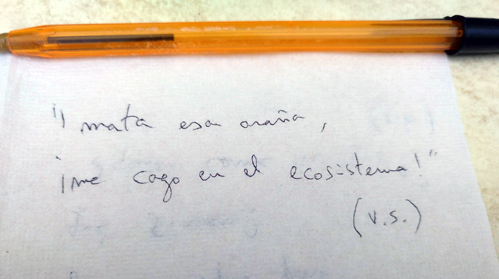 "¡mata esa araña,
¡me cago en el ecosistema!"
(V.S.)